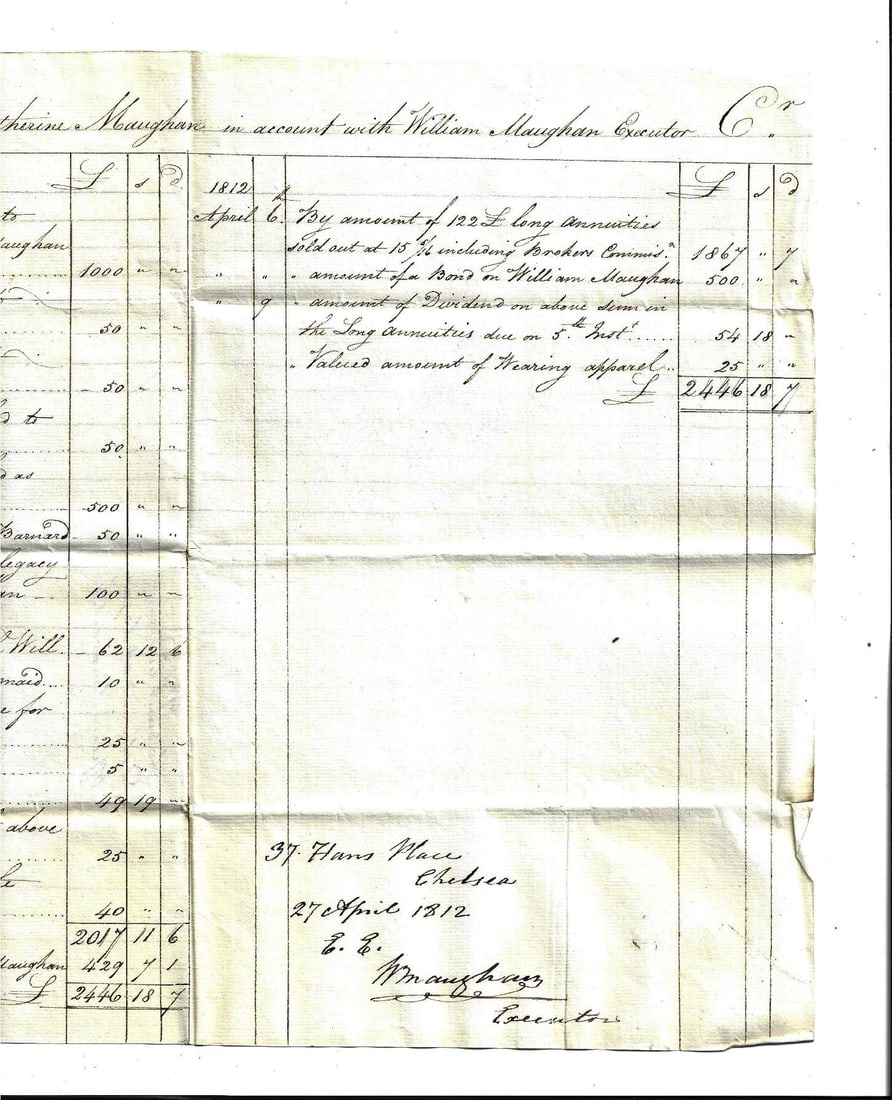 therine Maughan in account with William Maughan Executor Cr
£ s d
to
Maughan
1000 " "
50 " "
50 " "
d to
50 " "
d as
500 " "
Barnard 50 " "
legacy
an 100 " "
Will. 62 12 6
maid 10 " "
e for
25 " "
5 " "
49 19 "
above
25 " "
40 " "
2017 11 6
Maughan 429 7 1
£ 2446 18 7
1812 £ s d
April 6th By amount of 122 £ long annuities
sold out at 15 5/16 including Brokers Commisn 1867 " 7
" " " amount of a Bond on William Maughan 500 " "
" 9 " amount of Dividend on above sum in
the Long Annuities due on 5th Inst ...... 54 18 "
" Valued amount of Wearing apparel .. 25 " "
£ 2446 18 7
37 Hans Place
Chelsea
27 April 1812
E. E.
WMaughan
Executor